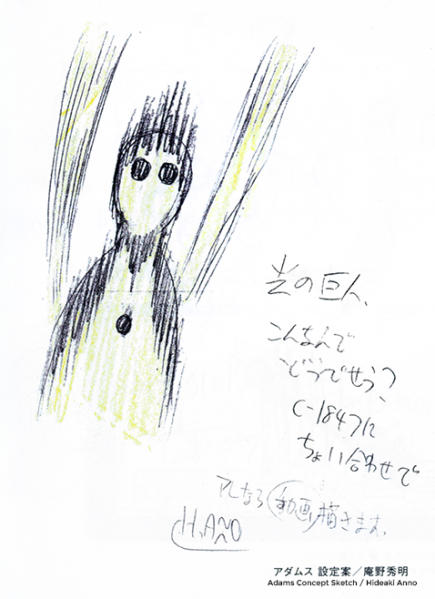 光の巨人、
こんなんで
どうでせう?
C-1847に
ちょい合わせで
アレなら動画描きます。
H.ANNO
アダムス 設定案／庵野秀明
Adams Concept Sketch / Hideaki Anno